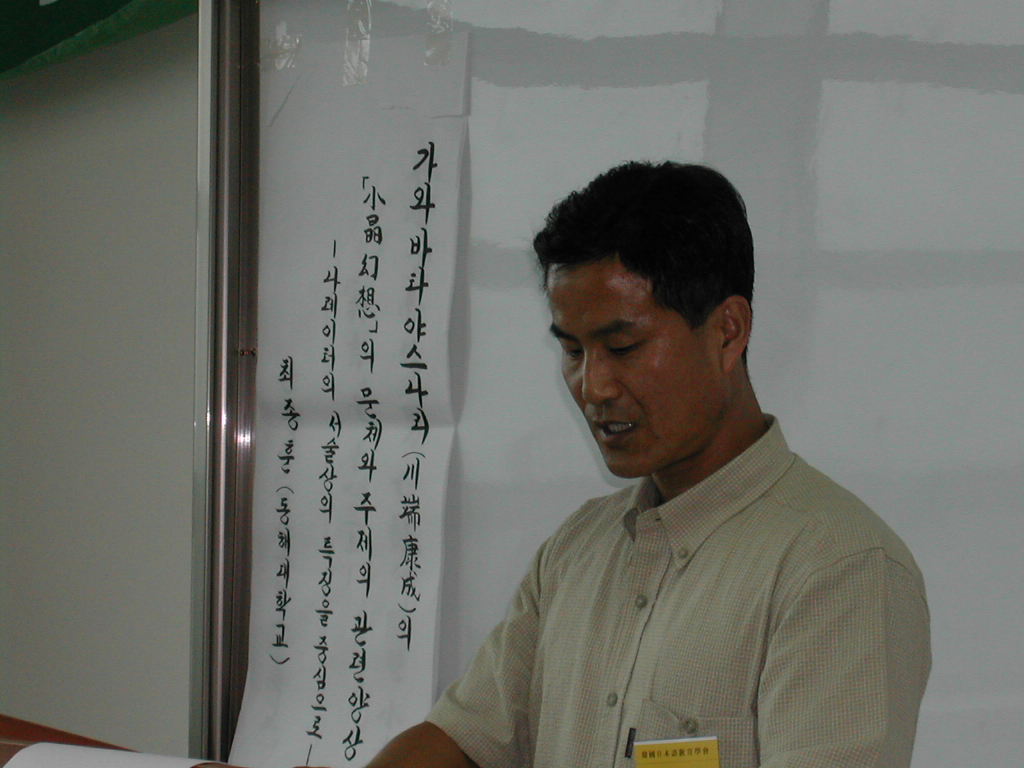 가와바타야스나리(川端康成)의
「小晶幻想」의 문체와 주제의 관련양상
－나레이터의 서술상의 특징을 중심으로－
최종훈(동해대학교)
韓國日本語敎育學會